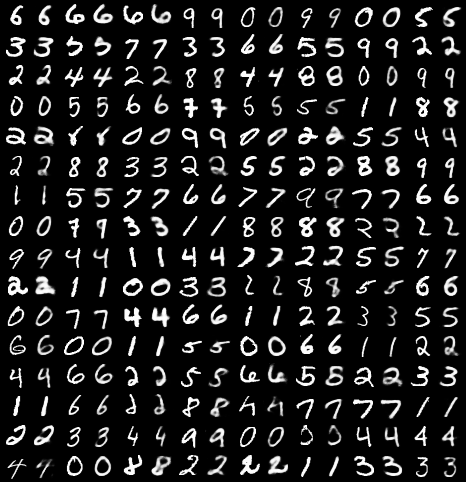 6 6 6 6 6 6 9 9 0 0 9 9 0 0 5 5
3 3 5 5 7 7 3 3 6 6 5 5 9 9 2 2
2 2 4 4 2 2 8 8 4 4 8 8 0 0 9 9
0 0 5 5 6 6 7 7 5 5 5 5 1 1 8 8
2 2 8 8 0 0 9 9 0 0 2 2 5 5 4 4
2 2 8 8 3 3 2 2 5 5 2 2 8 8 9 9
1 1 5 5 7 7 6 6 7 7 9 9 7 7 6 6
0 0 7 9 3 3 1 1 8 8 8 8 2 2 2 2
9 9 4 4 1 1 4 4 7 7 2 2 5 5 7 7
2 2 1 1 0 0 3 3 2 2 8 8 5 5 6 6
0 0 7 7 4 4 6 6 1 1 2 2 3 3 5 5
6 6 0 0 1 1 5 5 0 0 6 6 1 1 2 2
4 4 6 6 2 2 5 5 6 6 5 5 2 2 3 3
1 1 6 6 2 2 8 8 7 7 7 7 1 1
2 2 3 3 4 4 9 9 0 0 4 4 4 4
4 4 0 0 8 8 2 2 2 2 1 1 3 3 3 3